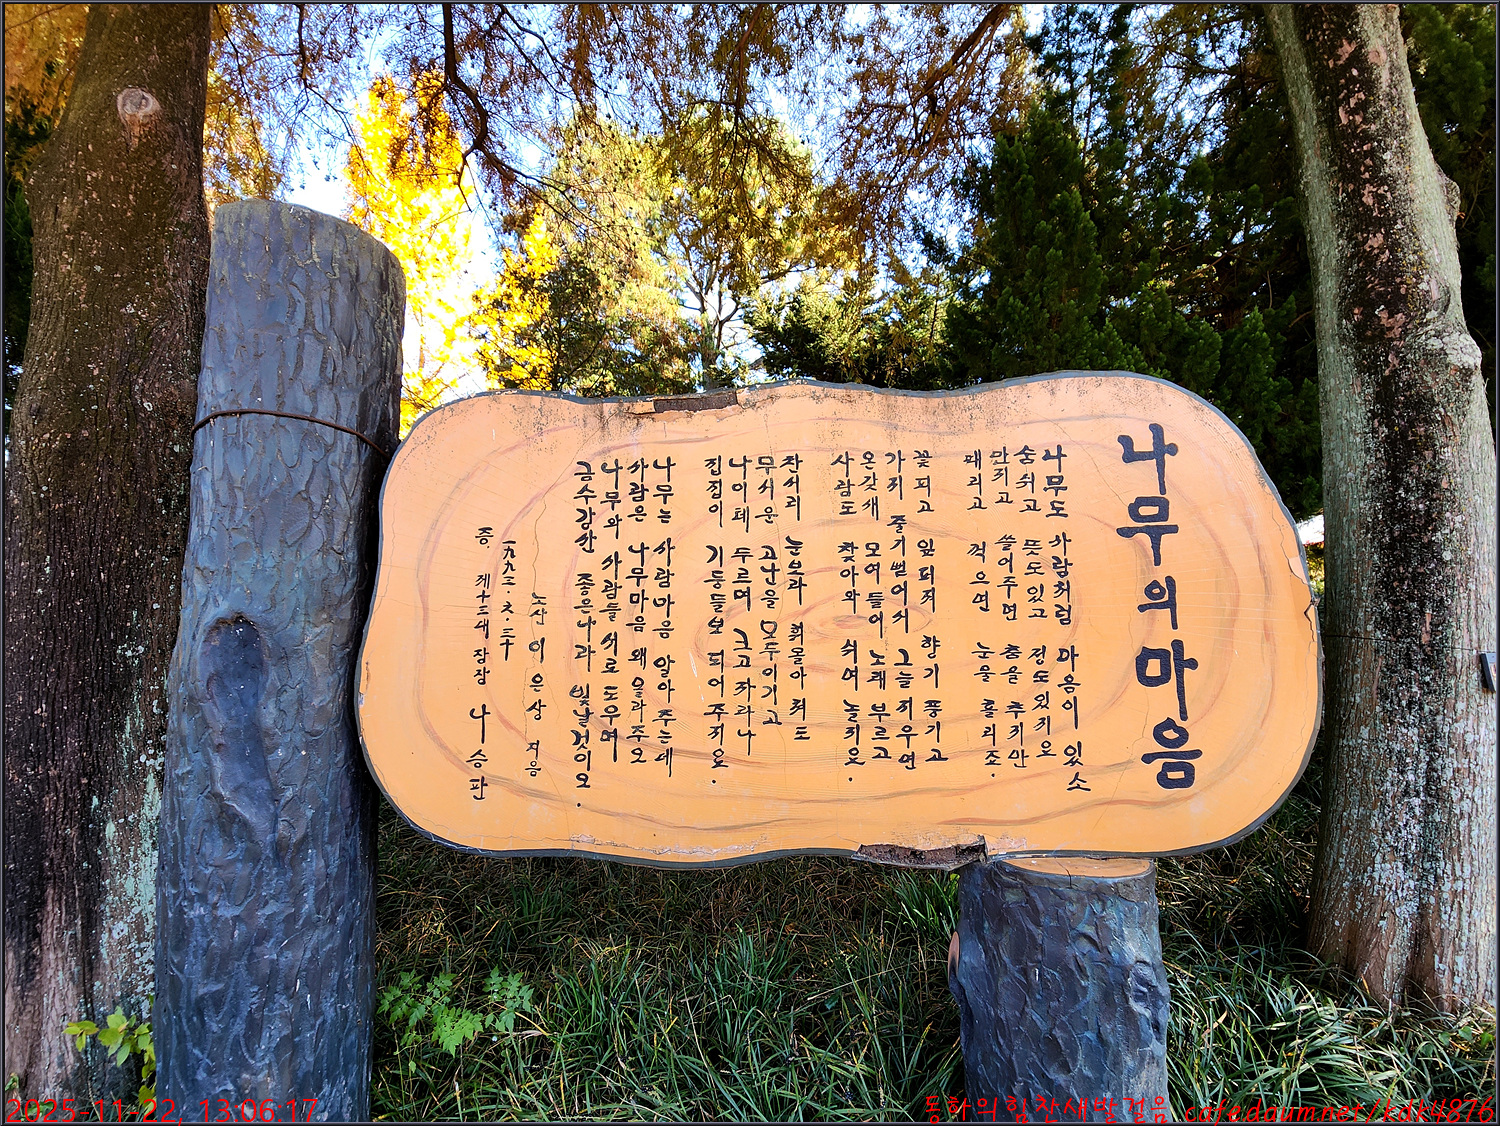 나무의 마음
나무도 사람처럼 마음이 있소
숨쉬고 뜻도있고 정도있지요
만지고 쓸어주면 춤을 추지만
때리고 꺽으면 눈물 흘리죠.
꽃피고 잎피져 향기 풍기고
가지 줄기 뻗어서 그늘 지우면
온갖새 모여들어 노래 부르고
사람도 찾아와 쉬며 놀지요.
찬서리 눈보라 휘몰아쳐도
무서운 고난을 모두이기고
나이테 두르며 크고자라나
집집이 기둥들보 되어주지요.
나무는 사람마음 알아주는데
사람은 나무마음 왜 몰라주오
나무와 사람들 서로 도우며
금수강산 좋은나라 빛날것이오.
노산 이은상 지음
一九九三.  .三十
증. 제十三대장장 나승판
2025-11-22, 13:06:17
동하의힘찬새발걸음 cafe.daum.net/kdk4876